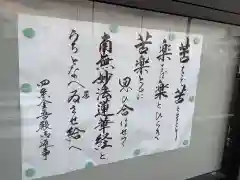 苦をば苦とさとり
楽をば楽とひらき
苦楽ともに
思ひ合はせて
南無妙法蓮華経と
うちとなへ させ給へ
四条金吾殿御返事